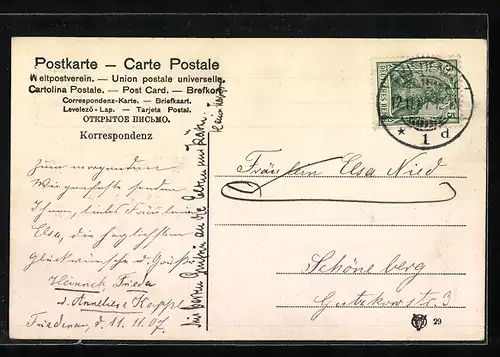 Postkarte – Carte Postale
Weltpostverein. — Union postale universelle.
Cartolina Postale. — Post Card. — Brefkort.
Correspondenz-Karte. — Briefkaart.
Levelező-Lap. — Tarjeta Postal.
ОТКРЫТОЕ ПИСЬМО.
Korrespondenz
Zum morgenden
Wiegenfeste senden
Ihnen, liebes Fräulein
Elsa, die herzlichsten
Glückwünsche u. Grüße
Heinrich, Frieda
u. Anneliese Koppe
Friedenau, d. 11. 11. 07.
DEUTSCHES REICH
5
* 1 d
Fräulein Elsa Nied
Schöneberg
Gutzkowstr. 3
29